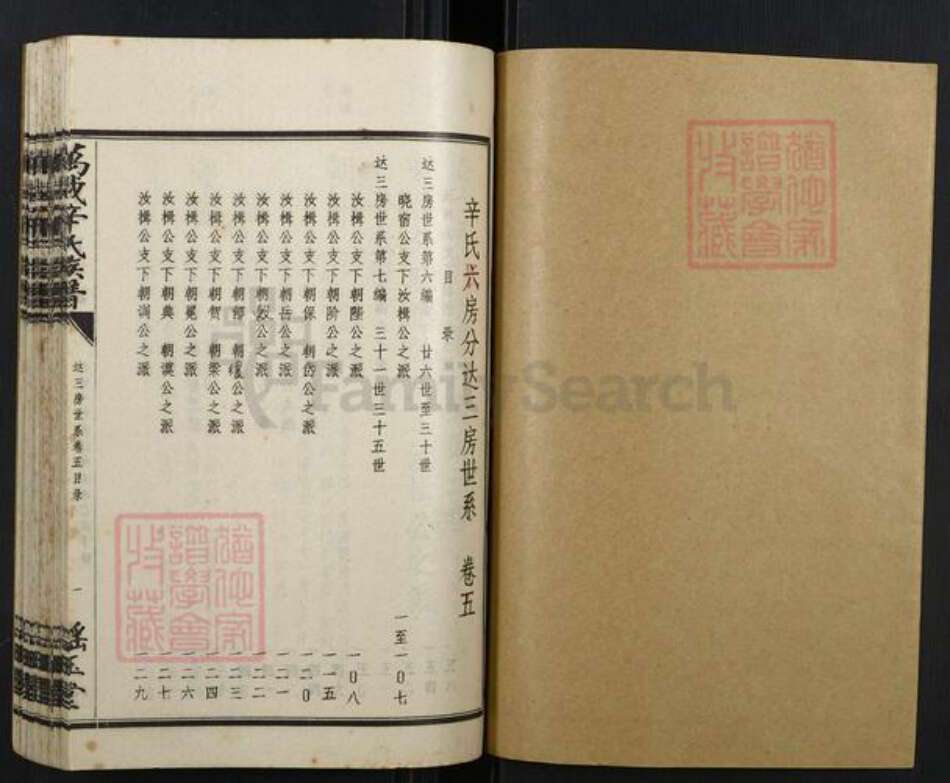 辛氏六房分达三房世系 卷五
目录
达三房世系第六编 廿六世至三十世
晓窗公支下汝楫公之派 一至一0七
达三房世系第七编 三十一世三十五世
汝楫公支下朝陛公之派 一0八
汝楫公支下朝阶公之派 一一五
汝楫公支下朝保 朝岱公之派 一二0
汝楫公支下朝岳公之派 一二一
汝楫公支下朝 公之派 一二二
汝楫公支下朝 朝 公之派 一二三
汝楫公支下朝贺 朝梁公之派 一二四
汝楫公支下朝冕公之派 一二六
汝楫公支下朝典 朝谟公之派 一二七
汝楫公支下朝训公之派 一二九
萬载辛氏族譜
达三房世系卷五目录
一
瑶玉堂
譜學會
收藏
譜學會
收藏
FamilySearch